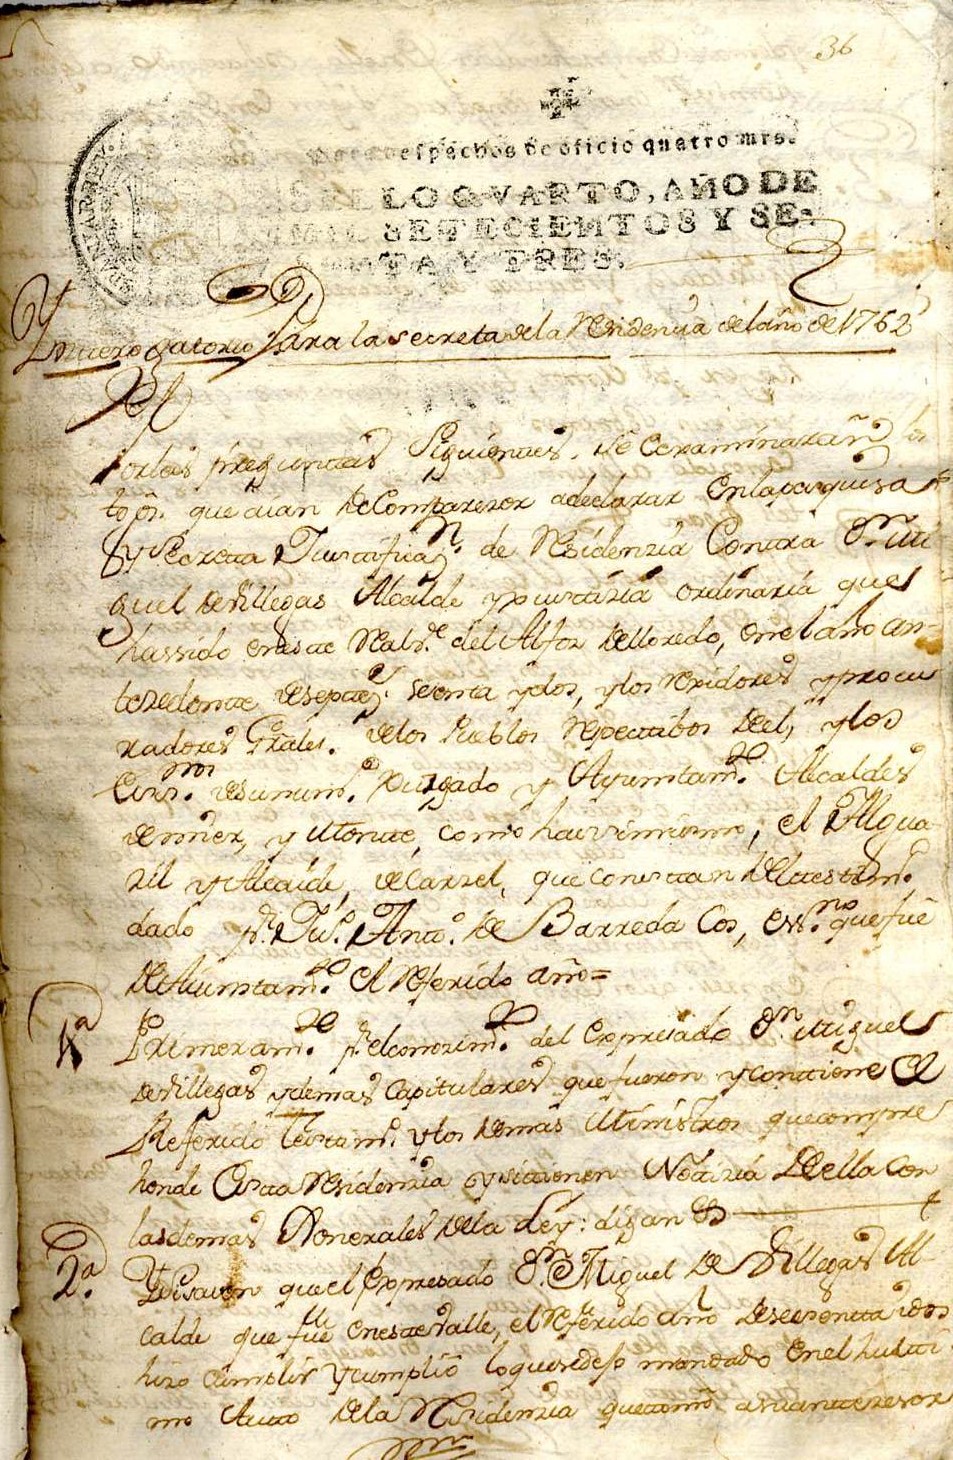 36
Para despachos de oficio quatro mrs.
SELLO QVARTO, AÑO DE
MIL SETECIENTOS Y SE-
SENTA Y TRES.
Ynterrogatorio Para la secreta de la Residencia del año de 1762
Por las preguntas Siguientes, se examinaran los
tgõs. que aian de Comparezer a declarar en la pesquisa
y Secreta Justificaz.n de Residenzia Contra D.n Mi
guel de Villegas Alcalde y Justizia ordinaria que
ha sido en este Real V.e del Alfoz de Lloredo, en el año an-
tezedente de setez.s sesenta y dos, y los rexidores y procu
radores Grãles. de los Pueblos respectibos de el, y los
Ess.nos de su num.o Juzgado y Ayuntam.to Alcaldes
de mder, y Monte, como haximismo, el Algua
zil y Alcaide, de Carzel, que constan del testim.o
dado p.r Ju.n Ant.o de Barreda Cos, ess.no que fue
de Aiuntam.to el referido año=
1ª Primeram.te p.r el conozim.to del expresado D.n Miguel
de Villegas y demas Capitulares que fueron y contiene el
Referido testim.o y los demas Ministros que compre
hende esta residenzia y si tienen Notizia de ella con
las demas Generales de la Ley: digan &
2ª. Y si saven que el expresado D.n Miguel de Villegas Al-
calde que fue en este Valle, el referido año de sesenta i dos
hizo cumplir y cumplió lo que se dejo mandado en el hulti
mo Auto de la Residenzia que tomó a su antezesor